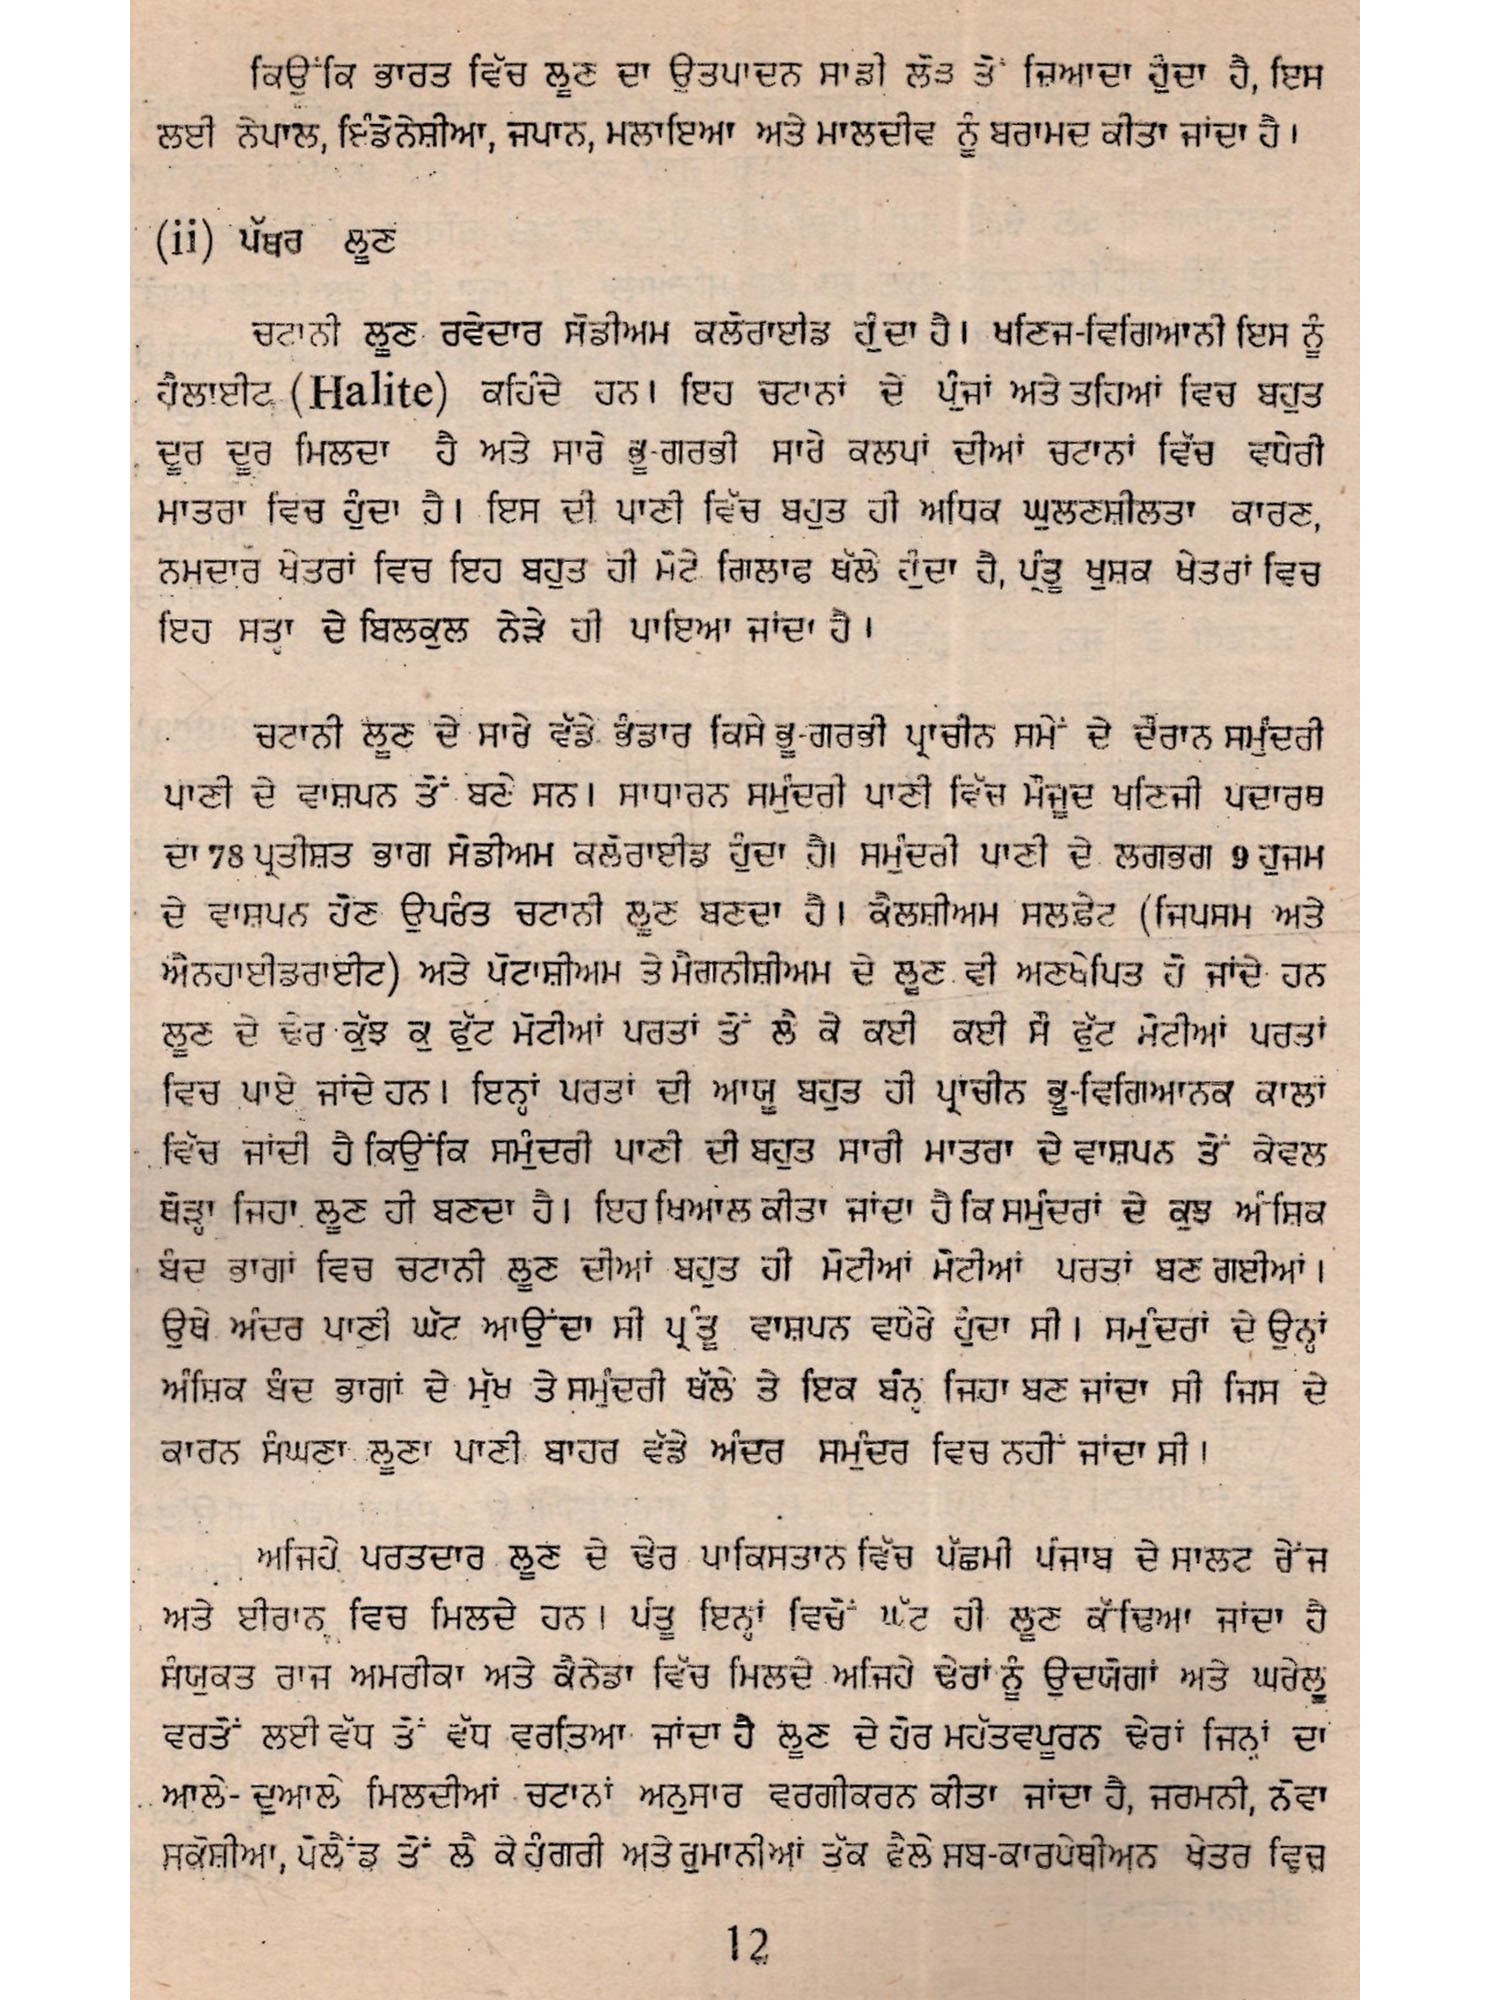 ਕਿਉਂਕਿ ਭਾਰਤ ਵਿੱਚ ਲੂਣ ਦਾ ਉਤਪਾਦਨ ਸਾਡੀ ਲੋੜ ਤੋਂ ਜ਼ਿਆਦਾ ਹੁੰਦਾ ਹੈ, ਇਸ
ਲਈ ਨੇਪਾਲ, ਇੰਡੋਨੇਸ਼ੀਆ, ਜਪਾਨ, ਮਲਾਇਆ ਅਤੇ ਮਾਲਦੀਵ ਨੂੰ ਬਰਾਮਦ ਕੀਤਾ ਜਾਂਦਾ ਹੈ।
(ii) ਪੱਥਰ ਲੂਣ
ਚਟਾਨੀ ਲੂਣ ਰਵੇਦਾਰ ਸੋਡੀਅਮ ਕਲੋਰਾਈਡ ਹੁੰਦਾ ਹੈ। ਖਣਿਜ-ਵਿਗਿਆਨੀ ਇਸ ਨੂੰ
ਹੈਲਾਈਟ (Halite) ਕਹਿੰਦੇ ਹਨ। ਇਹ ਚਟਾਨਾਂ ਦੇ ਪੁੰਜਾਂ ਅਤੇ ਤਹਿਆਂ ਵਿਚ ਬਹੁਤ
ਦੂਰ ਦੂਰ ਮਿਲਦਾ ਹੈ ਅਤੇ ਸਾਰੇ ਭੂ-ਗਰਭੀ ਸਾਰੇ ਕਲਪਾਂ ਦੀਆਂ ਚਟਾਨਾਂ ਵਿੱਚ ਵਧੇਰੀ
ਮਾਤਰਾ ਵਿਚ ਹੁੰਦਾ ਹੈ। ਇਸ ਦੀ ਪਾਣੀ ਵਿੱਚ ਬਹੁਤ ਹੀ ਅਧਿਕ ਘੁਲਣਸ਼ੀਲਤਾ ਕਾਰਣ,
ਨਮਦਾਰ ਖੇਤਰਾਂ ਵਿਚ ਇਹ ਬਹੁਤ ਹੀ ਮੋਟੇ ਗਿਲਾਫ ਥੱਲੇ ਹੁੰਦਾ ਹੈ, ਪ੍ਰੰਤੂ ਖੁਸ਼ਕ ਖੇਤਰਾਂ ਵਿਚ
ਇਹ ਸਤ੍ਹਾ ਦੇ ਬਿਲਕੁਲ ਨੇੜੇ ਹੀ ਪਾਇਆ ਜਾਂਦਾ ਹੈ।
ਚਟਾਨੀ ਲੂਣ ਦੇ ਸਾਰੇ ਵੱਡੇ ਭੰਡਾਰ ਕਿਸੇ ਭੂ-ਗਰਭੀ ਪ੍ਰਾਚੀਨ ਸਮੇਂ ਦੇ ਦੌਰਾਨ ਸਮੁੰਦਰੀ
ਪਾਣੀ ਦੇ ਵਾਸ਼ਪਨ ਤੋਂ ਬਣੇ ਸਨ। ਸਾਧਾਰਨ ਸਮੁੰਦਰੀ ਪਾਣੀ ਵਿੱਚ ਮੌਜੂਦ ਖਣਿਜੀ ਪਦਾਰਥ
ਦਾ 78 ਪ੍ਰਤੀਸ਼ਤ ਭਾਗ ਸੋਡੀਅਮ ਕਲੋਰਾਈਡ ਹੁੰਦਾ ਹੈ। ਸਮੁੰਦਰੀ ਪਾਣੀ ਦੇ ਲਗਭਗ 9 ਹੁਜਮ
ਦੇ ਵਾਸ਼ਪਨ ਹੋਣ ਉਪਰੰਤ ਚਟਾਨੀ ਲੂਣ ਬਣਦਾ ਹੈ। ਕੈਲਸ਼ੀਅਮ ਸਲਫ਼ੇਟ (ਜਿਪਸਮ ਅਤੇ
ਐਨਹਾਈਡਰਾਈਟ) ਅਤੇ ਪੋਟਾਸ਼ੀਅਮ ਤੇ ਮੈਗਨੀਸ਼ੀਅਮ ਦੇ ਲੂਣ ਵੀ ਅਣਖੇਪਿਤ ਹੋ ਜਾਂਦੇ ਹਨ
ਲੂਣ ਦੇ ਢੇਰ ਕੁੱਝ ਕੁ ਫੁੱਟ ਮੋਟੀਆਂ ਪਰਤਾਂ ਤੋਂ ਲੈ ਕੇ ਕਈ ਕਈ ਸੌ ਫੁੱਟ ਮੋਟੀਆਂ ਪਰਤਾਂ
ਵਿਚ ਪਾਏ ਜਾਂਦੇ ਹਨ। ਇਨ੍ਹਾਂ ਪਰਤਾਂ ਦੀ ਆਯੂ ਬਹੁਤ ਹੀ ਪ੍ਰਾਚੀਨ ਭੂ-ਵਿਗਿਆਨਕ ਕਾਲਾਂ
ਵਿੱਚ ਜਾਂਦੀ ਹੈ ਕਿਉਂਕਿ ਸਮੁੰਦਰੀ ਪਾਣੀ ਦੀ ਬਹੁਤ ਸਾਰੀ ਮਾਤਰਾ ਦੇ ਵਾਸ਼ਪਨ ਤੋਂ ਕੇਵਲ
ਥੋੜ੍ਹਾ ਜਿਹਾ ਲੂਣ ਹੀ ਬਣਦਾ ਹੈ। ਇਹ ਖਿਆਲ ਕੀਤਾ ਜਾਂਦਾ ਹੈ ਕਿ ਸਮੁੰਦਰਾਂ ਦੇ ਕੁਝ ਅੰਸ਼ਿਕ
ਬੰਦ ਭਾਗਾਂ ਵਿਚ ਚਟਾਨੀ ਲੂਣ ਦੀਆਂ ਬਹੁਤ ਹੀ ਮੋਟੀਆਂ ਮੋਟੀਆਂ ਪਰਤਾਂ ਬਣ ਗਈਆਂ।
ਉਥੇ ਅੰਦਰ ਪਾਣੀ ਘੱਟ ਆਉਂਦਾ ਸੀ ਪ੍ਰੰਤੂ ਵਾਸ਼ਪਨ ਵਧੇਰੇ ਹੁੰਦਾ ਸੀ। ਸਮੁੰਦਰਾਂ ਦੇ ਉਨ੍ਹਾਂ
ਅੰਸ਼ਿਕ ਬੰਦ ਭਾਗਾਂ ਦੇ ਮੁੱਖ ਤੇ ਸਮੁੰਦਰੀ ਥੱਲੇ ਤੇ ਇਕ ਬੰਨ੍ਹ ਜਿਹਾ ਬਣ ਜਾਂਦਾ ਸੀ ਜਿਸ ਦੇ
ਕਾਰਨ ਸੰਘਣਾ ਲੂਣਾ ਪਾਣੀ ਬਾਹਰ ਵੱਡੇ ਅੰਦਰ ਸਮੁੰਦਰ ਵਿਚ ਨਹੀਂ ਜਾਂਦਾ ਸੀ।
ਅਜਿਹੇ ਪਰਤਦਾਰ ਲੂਣ ਦੇ ਢੇਰ ਪਾਕਿਸਤਾਨ ਵਿੱਚ ਪੱਛਮੀ ਪੰਜਾਬ ਦੇ ਸਾਲਟ ਰੇਂਜ
ਅਤੇ ਈਰਾਨ ਵਿਚ ਮਿਲਦੇ ਹਨ। ਪੰਤੂ ਇਨ੍ਹਾਂ ਵਿਚੋਂ ਘੱਟ ਹੀ ਲੂਣ ਕੱਢਿਆ ਜਾਂਦਾ ਹੈ
ਸੰਯੁਕਤ ਰਾਜ ਅਮਰੀਕਾ ਅਤੇ ਕੈਨੇਡਾ ਵਿੱਚ ਮਿਲਦੇ ਅਜਿਹੇ ਢੇਰਾਂ ਨੂੰ ਉਦਯੋਗਾਂ ਅਤੇ ਘਰੇਲੂ
ਵਰਤੋਂ ਲਈ ਵੱਧ ਤੋਂ ਵੱਧ ਵਰਤਿਆ ਜਾਂਦਾ ਹੈ ਲੂਣ ਦੇ ਹੋਰ ਮਹੱਤਵਪੂਰਨ ਢੇਰਾਂ ਜਿਨ੍ਹਾਂ ਦਾ
ਆਲੇ- ਦੁਆਲੇ ਮਿਲਦੀਆਂ ਚਟਾਨਾਂ ਅਨੁਸਾਰ ਵਰਗੀਕਰਨ ਕੀਤਾ ਜਾਂਦਾ ਹੈ, ਜਰਮਨੀ, ਨੋਵਾ
ਸਕੋਸ਼ੀਆ, ਪੋਲੈਂਡ ਤੋਂ ਲੈ ਕੇ ਹੰਗਰੀ ਅਤੇ ਰੁਮਾਨੀਆਂ ਤੱਕ ਫੈਲੇ ਸਬ-ਕਾਰਪੇਥੀਅਨ ਖੇਤਰ ਵਿਚ
12